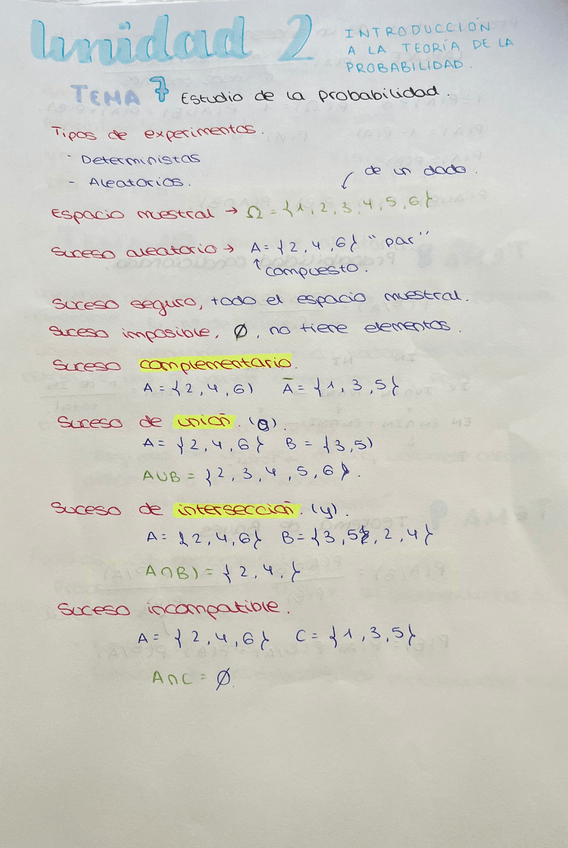 Unidad 2
INTRODUCCIÓN
A LA TEORÍA DE LA
PROBABILIDAD.
TEMA 7 Estudio de la probabilidad.
Tipos de experimentos.
- Deterministas
- Aleatorios.
de un dado.
Espacio muestral → Ω = {1, 2, 3, 4, 5, 6}
Suceso aleatorio → A = {2, 4, 6} "par"
↑ compuesto.
Suceso seguro, todo el espacio muestral.
Suceso imposible, Ø, no tiene elementos.
Suceso complementario.
A = {2, 4, 6) Ā = {1, 3, 5}
Suceso de unión. (o).
A = {2, 4, 6} B = {3, 5)
A∪B = {2, 3, 4, 5, 6}.
Suceso de intersección. (y).
A = {2, 4, 6} B = {3, 5, 2, 4}
A∩B) = {2, 4, }
Suceso incompatible.
A = {2, 4, 6} C = {1, 3, 5}
A∩C = Ø.